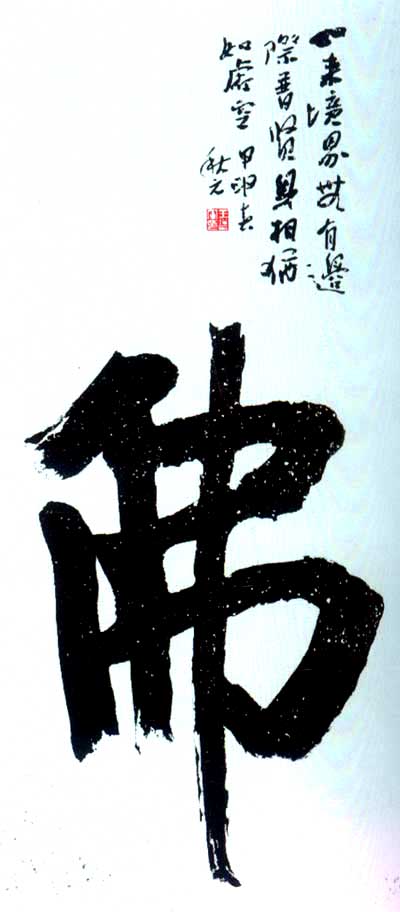 如来境界無有邊
際普賢身相猶
如虛空 甲申春
秋元
佛